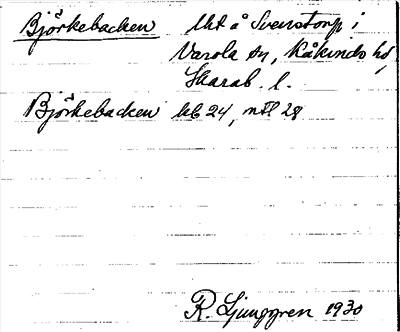 Björkebacken Uht å Svenstorp i
Varola sn, Kåkinds hd,
Skarab. l.
Björkebacken kb 24, mtl 28
R. Ljunggren 1930